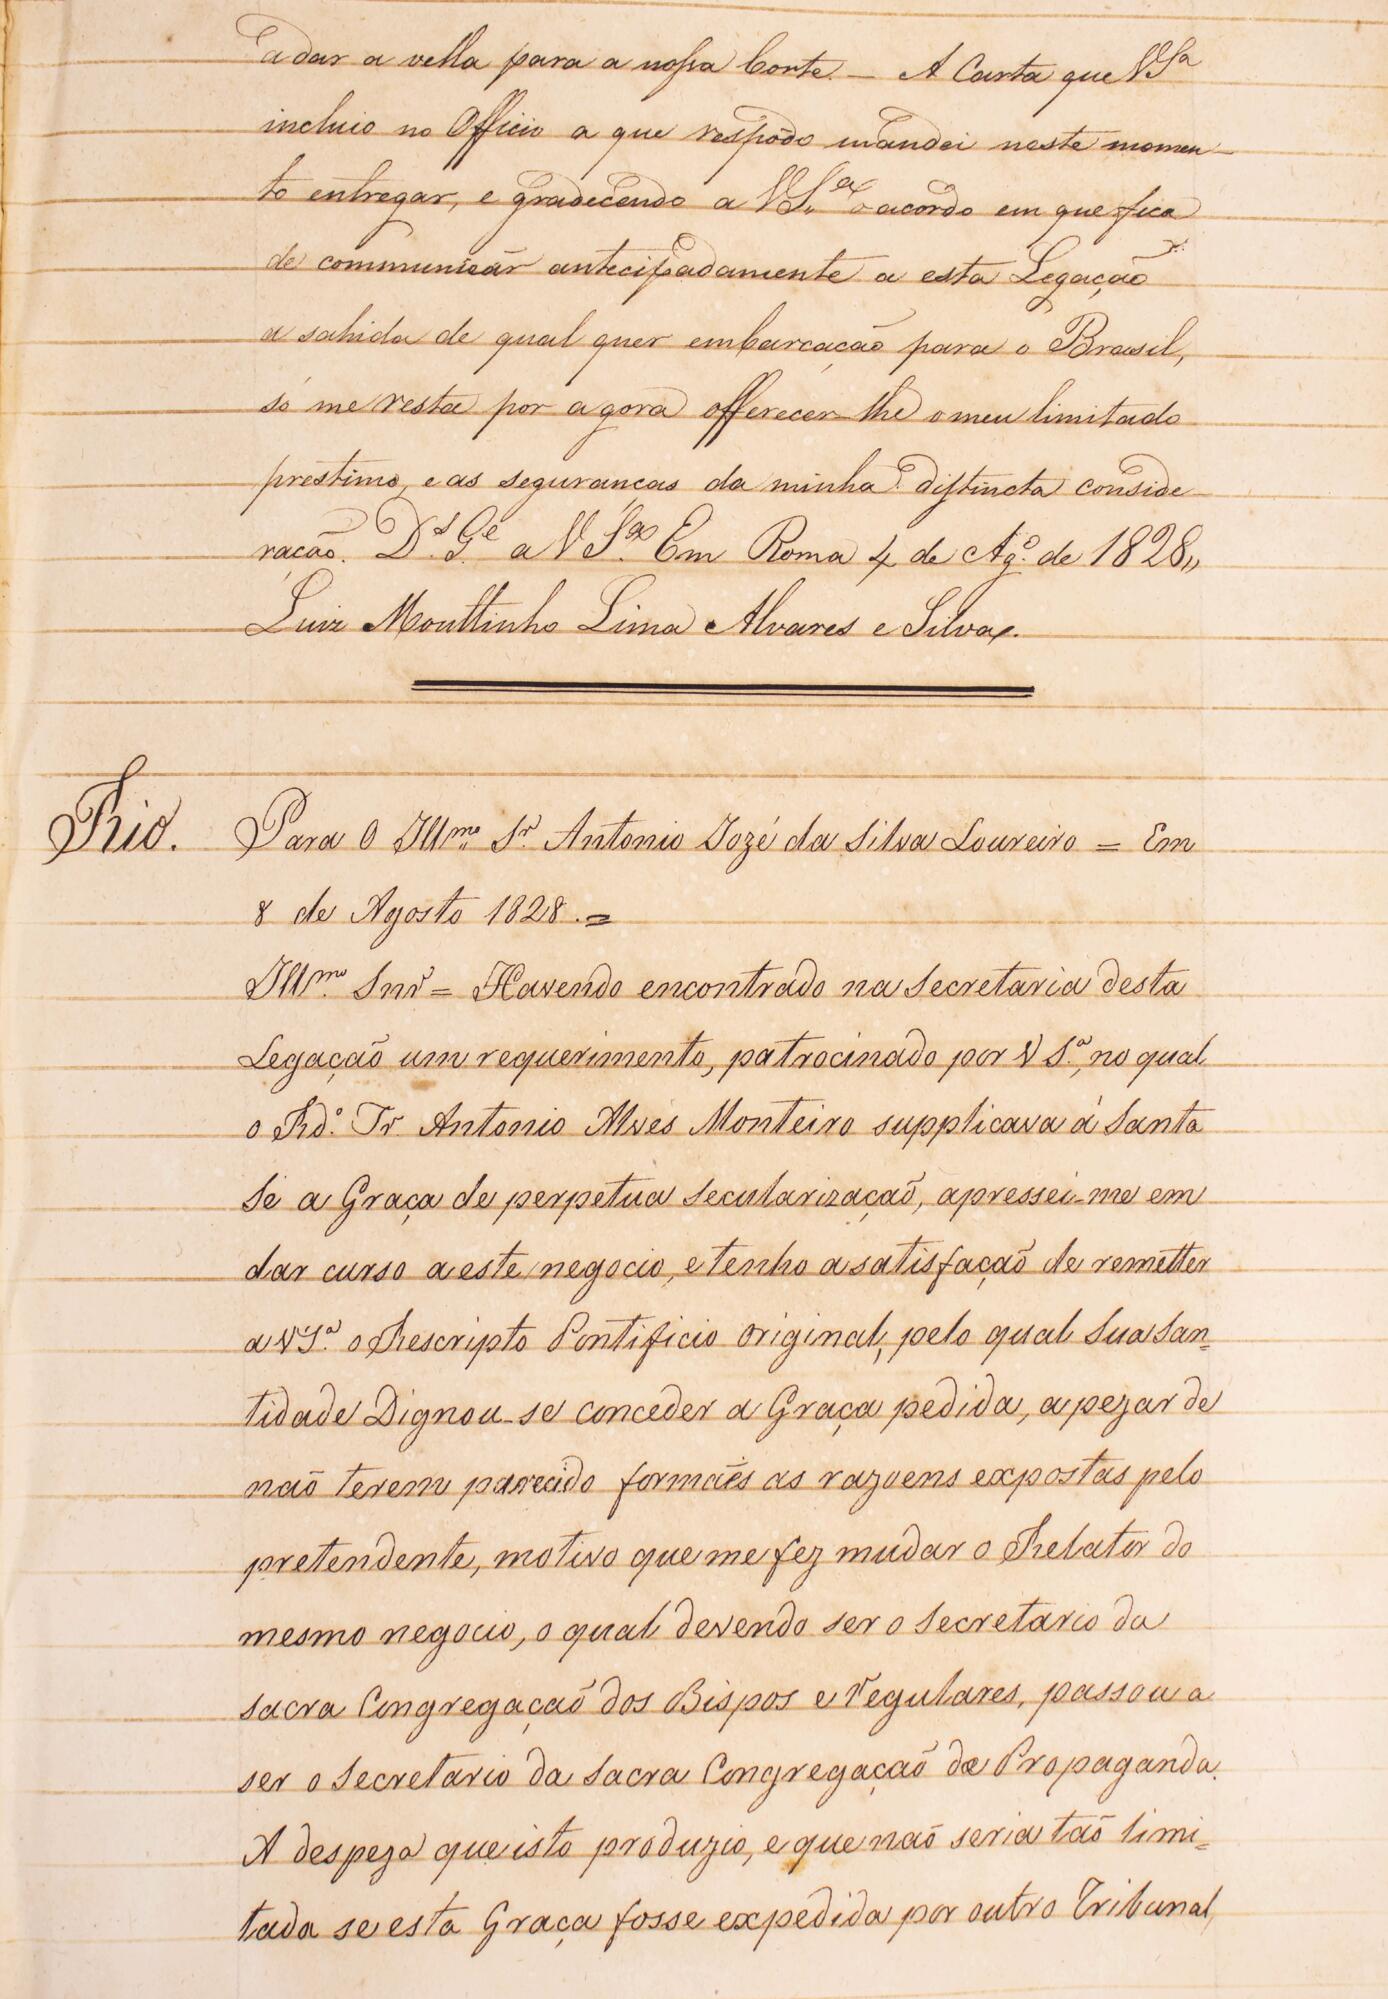 a dar a vella para a nossa Corte. — A Carta que VSª
incluio no Officio a que respõdo mandei neste momen-
to entregar, e gradecendo a VSª o acordo em que fica
de communicár antecipadamente a esta Legação
a sahida de qual quer embarcação para o Brasil,
só me resta por agora offerecer-lhe o meu limitado
prestimo, e as seguranças da minha distincta conside-
ração. Ds. Ge. a VSª. Em Roma 4 de Agº. de 1828,,
Luiz Mouttinho Lima Alvares e Silva.
Rio. Para O Illmo. Sr. Antonio Jozé da Silva Loureiro = Em
8 de Agosto 1828. =
Illmo. Snr = Havendo encontrado na Secretaria desta
Legação um requerimento, patrocinado por V Sª., no qual
o Rdº. Fr. Antonio Alves Monteiro supplicava á Santa
Sé a Graça de perpetua Secularização, apressei-me em
dar curso a este negocio, e tenho a satisfação de remetter
a VSª. o Rescripto Pontificio original, pelo qual Sua San=
tidade Dignou-se conceder a Graça pedida, a pezar de
não terem parecido formães as razoens expostas pelo
pretendente, motivo que me fez mudar o Relator do
mesmo negocio, o qual devendo ser o Secretario da
Sacra Congregação dos Bispos e regulares, passou a
ser o Secretario da Sacra Congregação de Propaganda.
A despeza que isto produzio, e que não seria tão limi=
tada se esta Graça fosse expedida por outro Tribunal,